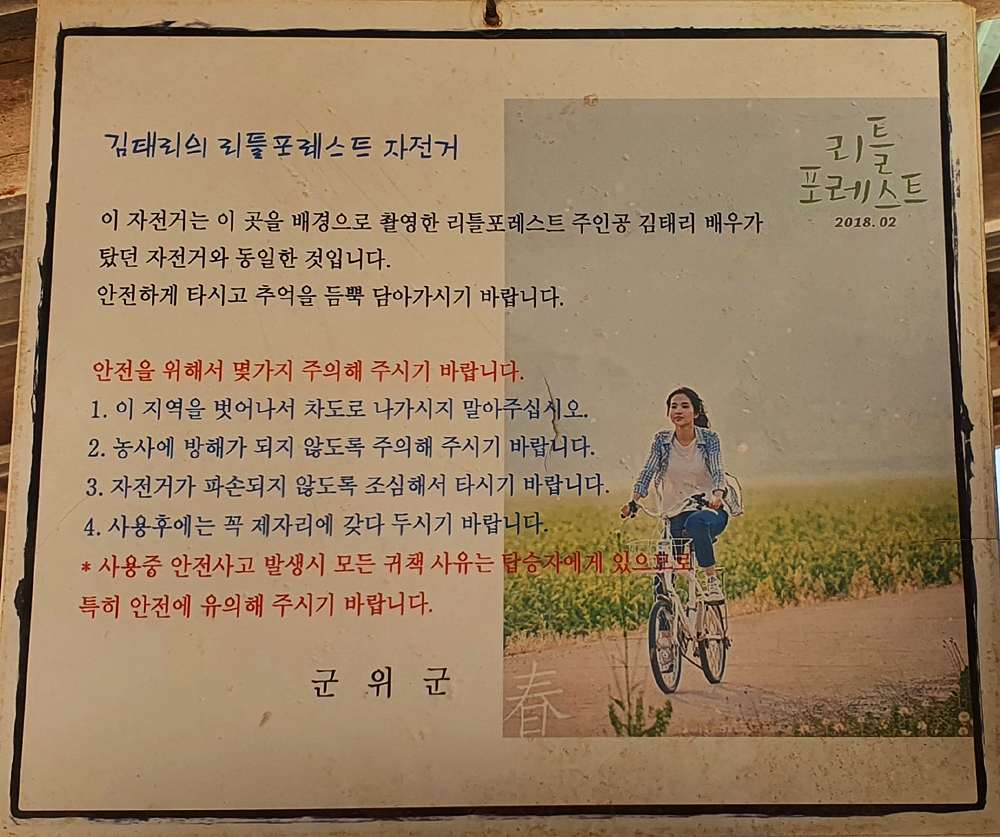 김태리의 리틀포레스트 자전거
리틀
포레스트
2018. 02
이 자전거는 이 곳을 배경으로 촬영한 리틀포레스트 주인공 김태리 배우가
탔던 자전거와 동일한 것입니다.
안전하게 타시고 추억을 듬뿍 담아가시기 바랍니다.
안전을 위해서 몇가지 주의해 주시기 바랍니다.
1. 이 지역을 벗어나서 차도로 나가시지 말아주십시오.
2. 농사에 방해가 되지 않도록 주의해 주시기 바랍니다.
3. 자전거가 파손되지 않도록 조심해서 타시기 바랍니다.
4. 사용후에는 꼭 제자리에 갖다 두시기 바랍니다.
* 사용중 안전사고 발생시 모든 귀책 사유는 탑승자에게 있으므로
특히 안전에 유의해 주시기 바랍니다.
군 위 군
春